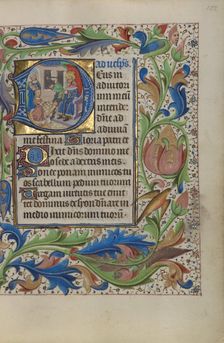 Eus in
adiutori
intende
dn̄e ad
adiuuā
me festina Gloria patri
Dixit dominus domino
meo sede a dextris meis.
Donec ponam inimicos tu
os scabellum pedum tuorum
Virgam virtutis tue emit
tet dominus ex syon dn̄are in
medio inimicorum tuorum.